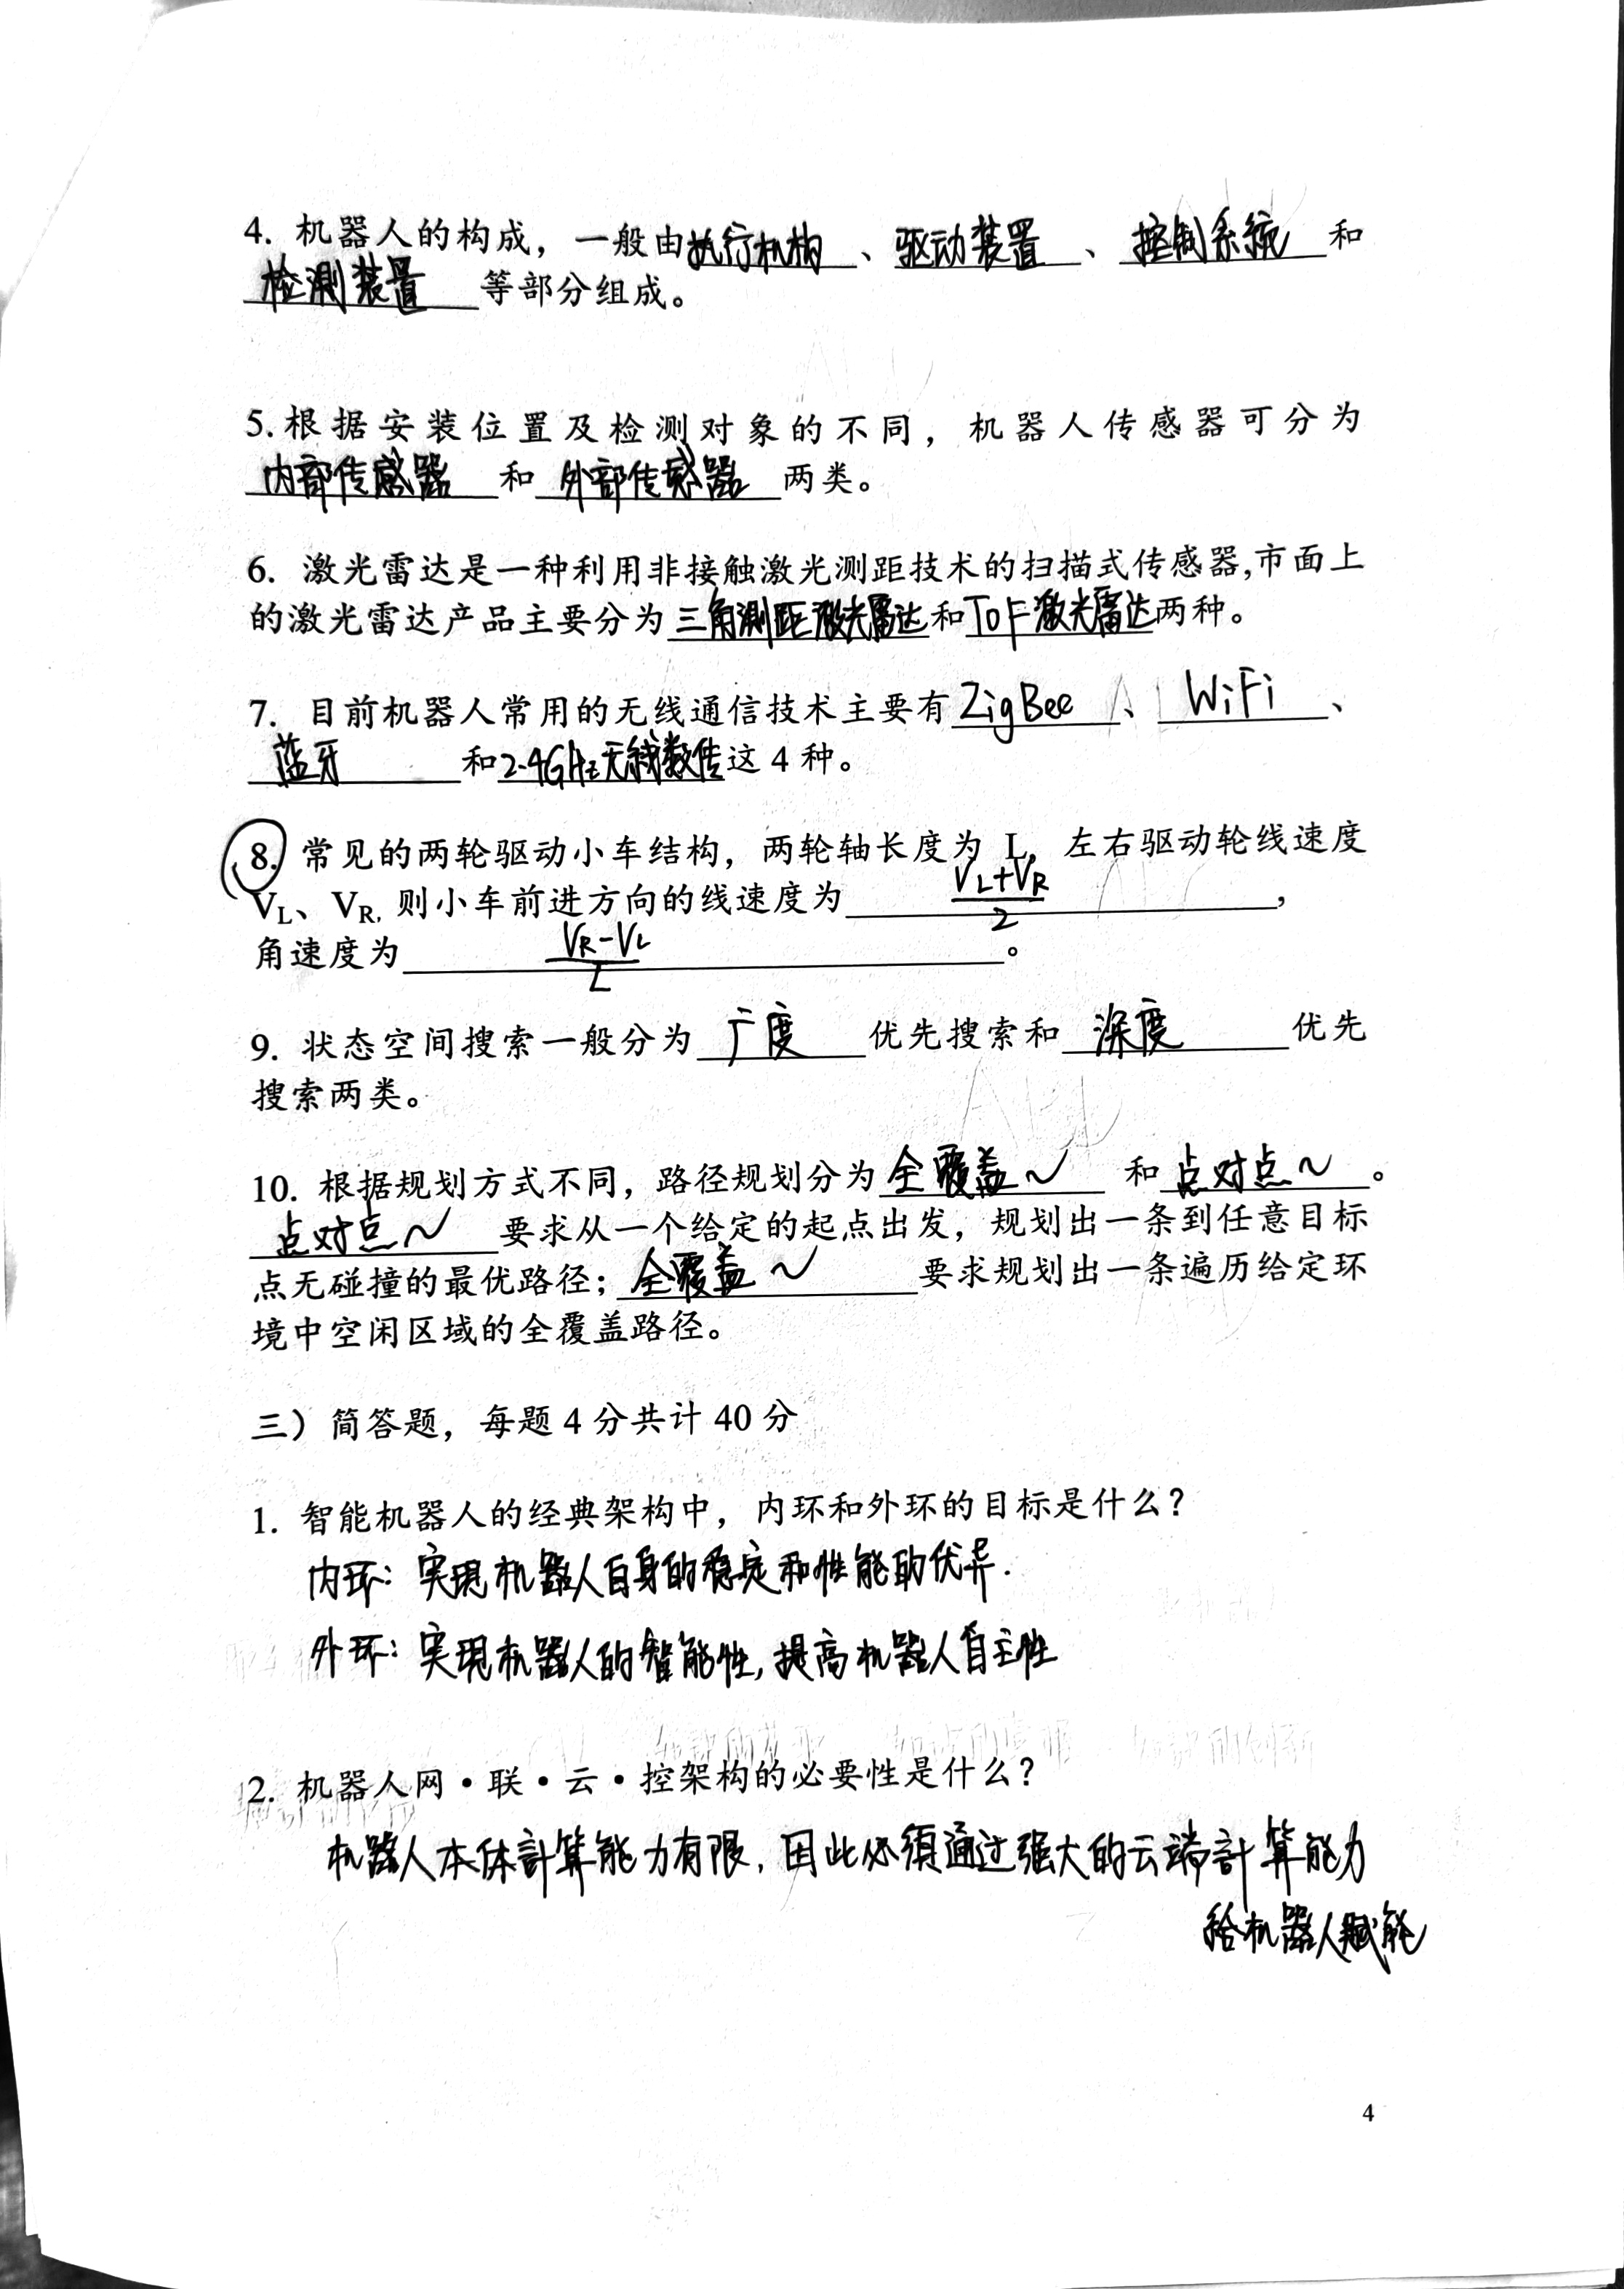 4. 机器人的构成，一般由执行机构、驱动装置、控制系统和
检测装置等部分组成。
5.根据安装位置及检测对象的不同，机器人传感器可分为
内部传感器和外部传感器两类。
6. 激光雷达是一种利用非接触激光测距技术的扫描式传感器,市面上
的激光雷达产品主要分为三角測距激光雷达和TOF激光雷达两种。
7. 目前机器人常用的无线通信技术主要有ZigBee、WiFi、
蓝牙和2.4GHz无线数传这 4 种。
8. 常见的两轮驱动小车结构，两轮轴长度为 L，左右驱动轮线速度
VL、VR, 则小车前进方向的线速度为 (VL+VR)/2，
角速度为 (VR-VL)/L。
9. 状态空间搜索一般分为广度优先搜索和深度优先
搜索两类。
10. 根据规划方式不同，路径规划分为全覆盖～和点对点～。
点对点～要求从一个给定的起点出发，规划出一条到任意目标
点无碰撞的最优路径；全覆盖～要求规划出一条遍历给定环
境中空闲区域的全覆盖路径。
三）简答题，每题 4 分共计 40 分
1. 智能机器人的经典架构中，内环和外环的目标是什么？
内环：实现机器人自身的稳定和性能的优异.
外环：实现机器人的智能性, 提高机器人自主性
2. 机器人网·联·云·控架构的必要性是什么？
机器人本体計算能力有限, 因此必须通过强大的云端計算能力
给机器人赋能
4